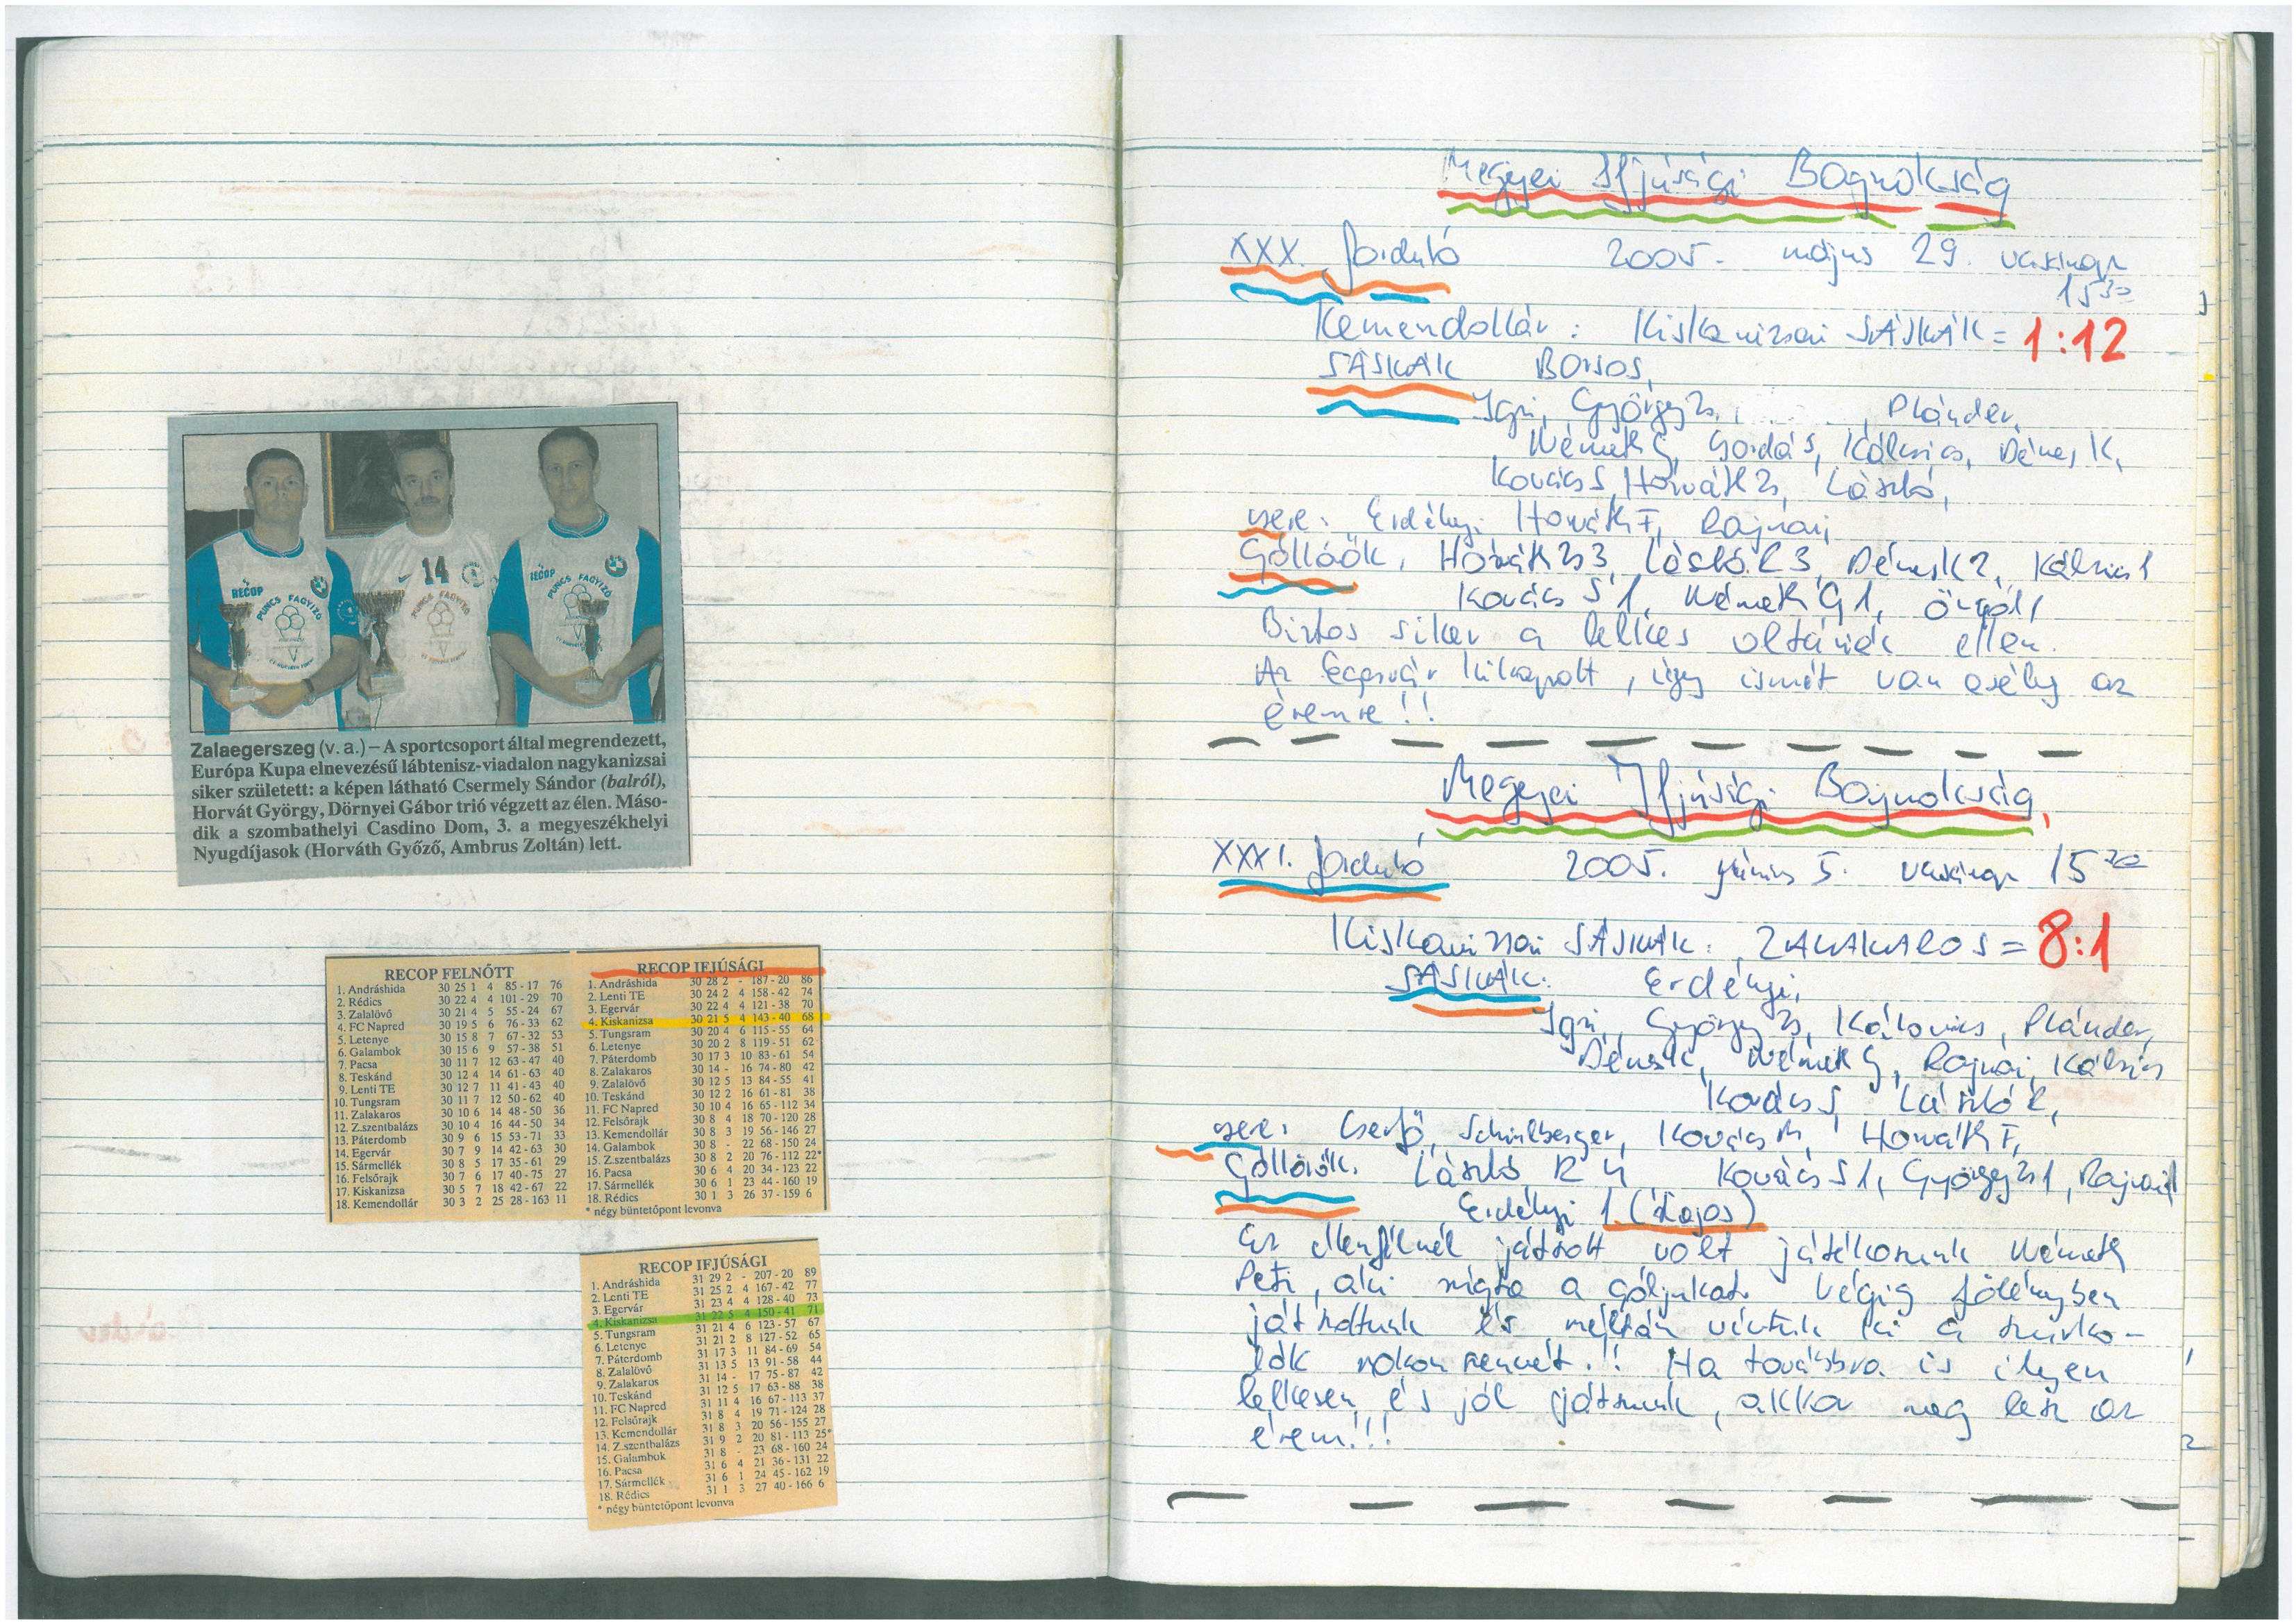 RECOP
PUNCS FAGYIZÓ
14
PUNCS FAGYIZÓ
RECOP
PUNCS FAGYIZÓ
Zalaegerszeg (v. a.) – A sportcsoport által megrendezett,
Európa Kupa elnevezésű lábtenisz-viadalon nagykanizsai
siker született: a képen látható Csermely Sándor (balról),
Horvát György, Dörnyei Gábor trió végzett az élen. Máso-
dik a szombathelyi Casdino Dom, 3. a megyeszékhelyi
Nyugdíjasok (Horváth Győző, Ambrus Zoltán) lett.
RECOP FELNŐTT
1. Andráshida 30 25 1 4 85-17 76
2. Rédics 30 22 4 4 101-29 70
3. Zalalövő 30 21 4 5 55-24 67
4. FC Napred 30 19 5 6 76-33 62
5. Letenye 30 15 8 7 67-32 53
6. Galambok 30 15 6 9 57-38 51
7. Pacsa 30 11 7 12 63-47 40
8. Teskánd 30 12 4 14 61-63 40
9. Lenti TE 30 12 7 11 41-43 40
10. Tungsram 30 11 7 12 50-62 40
11. Zalakaros 30 10 6 14 48-50 36
12. Z.szentbalázs 30 10 4 16 44-50 34
13. Páterdomb 30 9 6 15 53-71 33
14. Egervár 30 7 9 14 42-63 30
15. Sármellék 30 8 5 17 35-61 29
16. Felsőrajk 30 7 6 17 40-75 27
17. Kiskanizsa 30 5 7 18 42-67 22
18. Kemendollár 30 3 2 25 28-163 11
RECOP IFJÚSÁGI
1. Andráshida 30 28 2 - 187-20 86
2. Lenti TE 30 24 2 4 158-42 74
3. Egervár 30 22 4 4 121-38 70
4. Kiskanizsa 30 21 5 4 143-40 68
5. Tungsram 30 20 4 6 115-55 64
6. Letenye 30 20 2 8 119-51 62
7. Páterdomb 30 17 3 10 83-61 54
8. Zalakaros 30 14 - 16 74-80 42
9. Zalalövő 30 12 5 13 84-55 41
10. Teskánd 30 12 2 16 61-81 38
11. FC Napred 30 10 4 16 65-112 34
12. Felsőrajk 30 8 4 18 70-120 28
13. Kemendollár 30 8 3 19 56-146 27
14. Galambok 30 8 - 22 68-150 24
15. Z.szentbalázs 30 8 2 20 76-112 22*
16. Pacsa 30 6 4 20 34-123 22
17. Sármellék 30 6 1 23 44-160 19
18. Rédics 30 1 3 26 37-159 6
* négy büntetőpont levonva
RECOP IFJÚSÁGI
1. Andráshida 31 29 2 - 207-20 89
2. Lenti TE 31 25 2 4 167-42 77
3. Egervár 31 23 4 4 128-40 73
4. Kiskanizsa 31 22 5 4 150-41 71
5. Tungsram 31 21 4 6 123-57 67
6. Letenye 31 21 2 8 127-52 65
7. Páterdomb 31 17 3 11 84-69 54
8. Zalalövő 31 13 5 13 91-58 44
9. Zalakaros 31 14 - 17 75-87 42
10. Teskánd 31 12 5 17 63-88 38
11. FC Napred 31 11 4 16 67-113 37
12. Felsőrajk 31 8 4 19 71-124 28
13. Kemendollár 31 8 3 20 56-155 27
14. Z.szentbalázs 31 9 2 20 81-113 25*
15. Galambok 31 8 - 23 68-160 24
16. Pacsa 31 6 4 21 36-131 22
17. Sármellék 31 6 1 24 45-162 19
18. Rédics 31 1 3 27 40-166 6
* négy büntetőpont levonva
Megyei Ifjúsági Bajnokság
XXX. forduló 2005. május 29. vasárnap
15 30
Kemendollár : Kiskanizsai SÁSKÁK = 1:12
SÁSKÁK Borsos,
Igri, György Zs, Plánder,
Németh G, Gordás, Kálcsics, Dénes K,
Kovács S, Horváth Zs, László,
csere: Erdélyi, Horváth F, Rajnai,
Góllövők, Horváth Zs 3, László R 3, Dénes K 2, Kálcsics 1
Kovács S 1, Németh G 1, öngól 1
Biztos siker a lelkes oltáriak ellen.
Az Egervár kikapott, így ismét van esély az
éremre!!
Megyei Ifjúsági Bajnokság
XXXI. forduló 2005. június 5. vasárnap 15 30
Kiskanizsai SÁSKÁK : ZALAKAROS = 8:1
SÁSKÁK: Erdélyi,
Igri, György Zs, Kálovics, Plánder,
Dénes K, Németh G, Rajnai, Kálcsics
Kovács S, László R,
csere: Cserfő, Schmilberger, Kovács M, Horváth F,
Góllövők. László R 4 Kovács S 1, György Zs 1, Rajnai 1
Erdélyi 1 (11-es)
Az ellenfélnél játszott volt játékosunk Németh
Peti, aki rúgta a góljukat. Végig fölényben
játszottunk és méltán vívtuk ki a szurko-
lók rokonszenvét.!! Ha továbbra is ilyen
lelkesen és jól játszunk, akkor meg lesz az
érem!!!